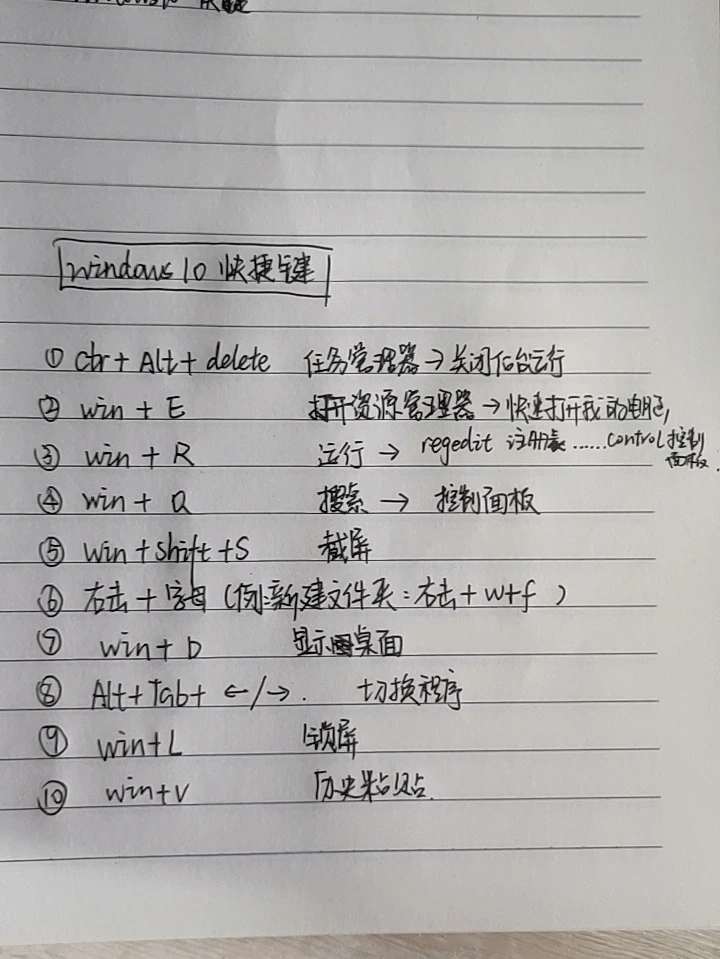 Windows 10 快捷键
① ctr + Alt + delete 任务管理器 → 关闭后台运行
② win + E 打开资源管理器 → 快速打开我的电脑,
③ win + R 运行 → regedit 注册表 ......control 控制面板.
④ win + Q 搜索 → 控制面板
⑤ win + shift + S 截屏
⑥ 右击 + 字母 (例:新建文件夹:右击 + w + f )
⑦ win + D 显示桌面
⑧ Alt + Tab + ←/→. 切换程序
⑨ win + L 锁屏
⑩ win + v 历史粘贴.